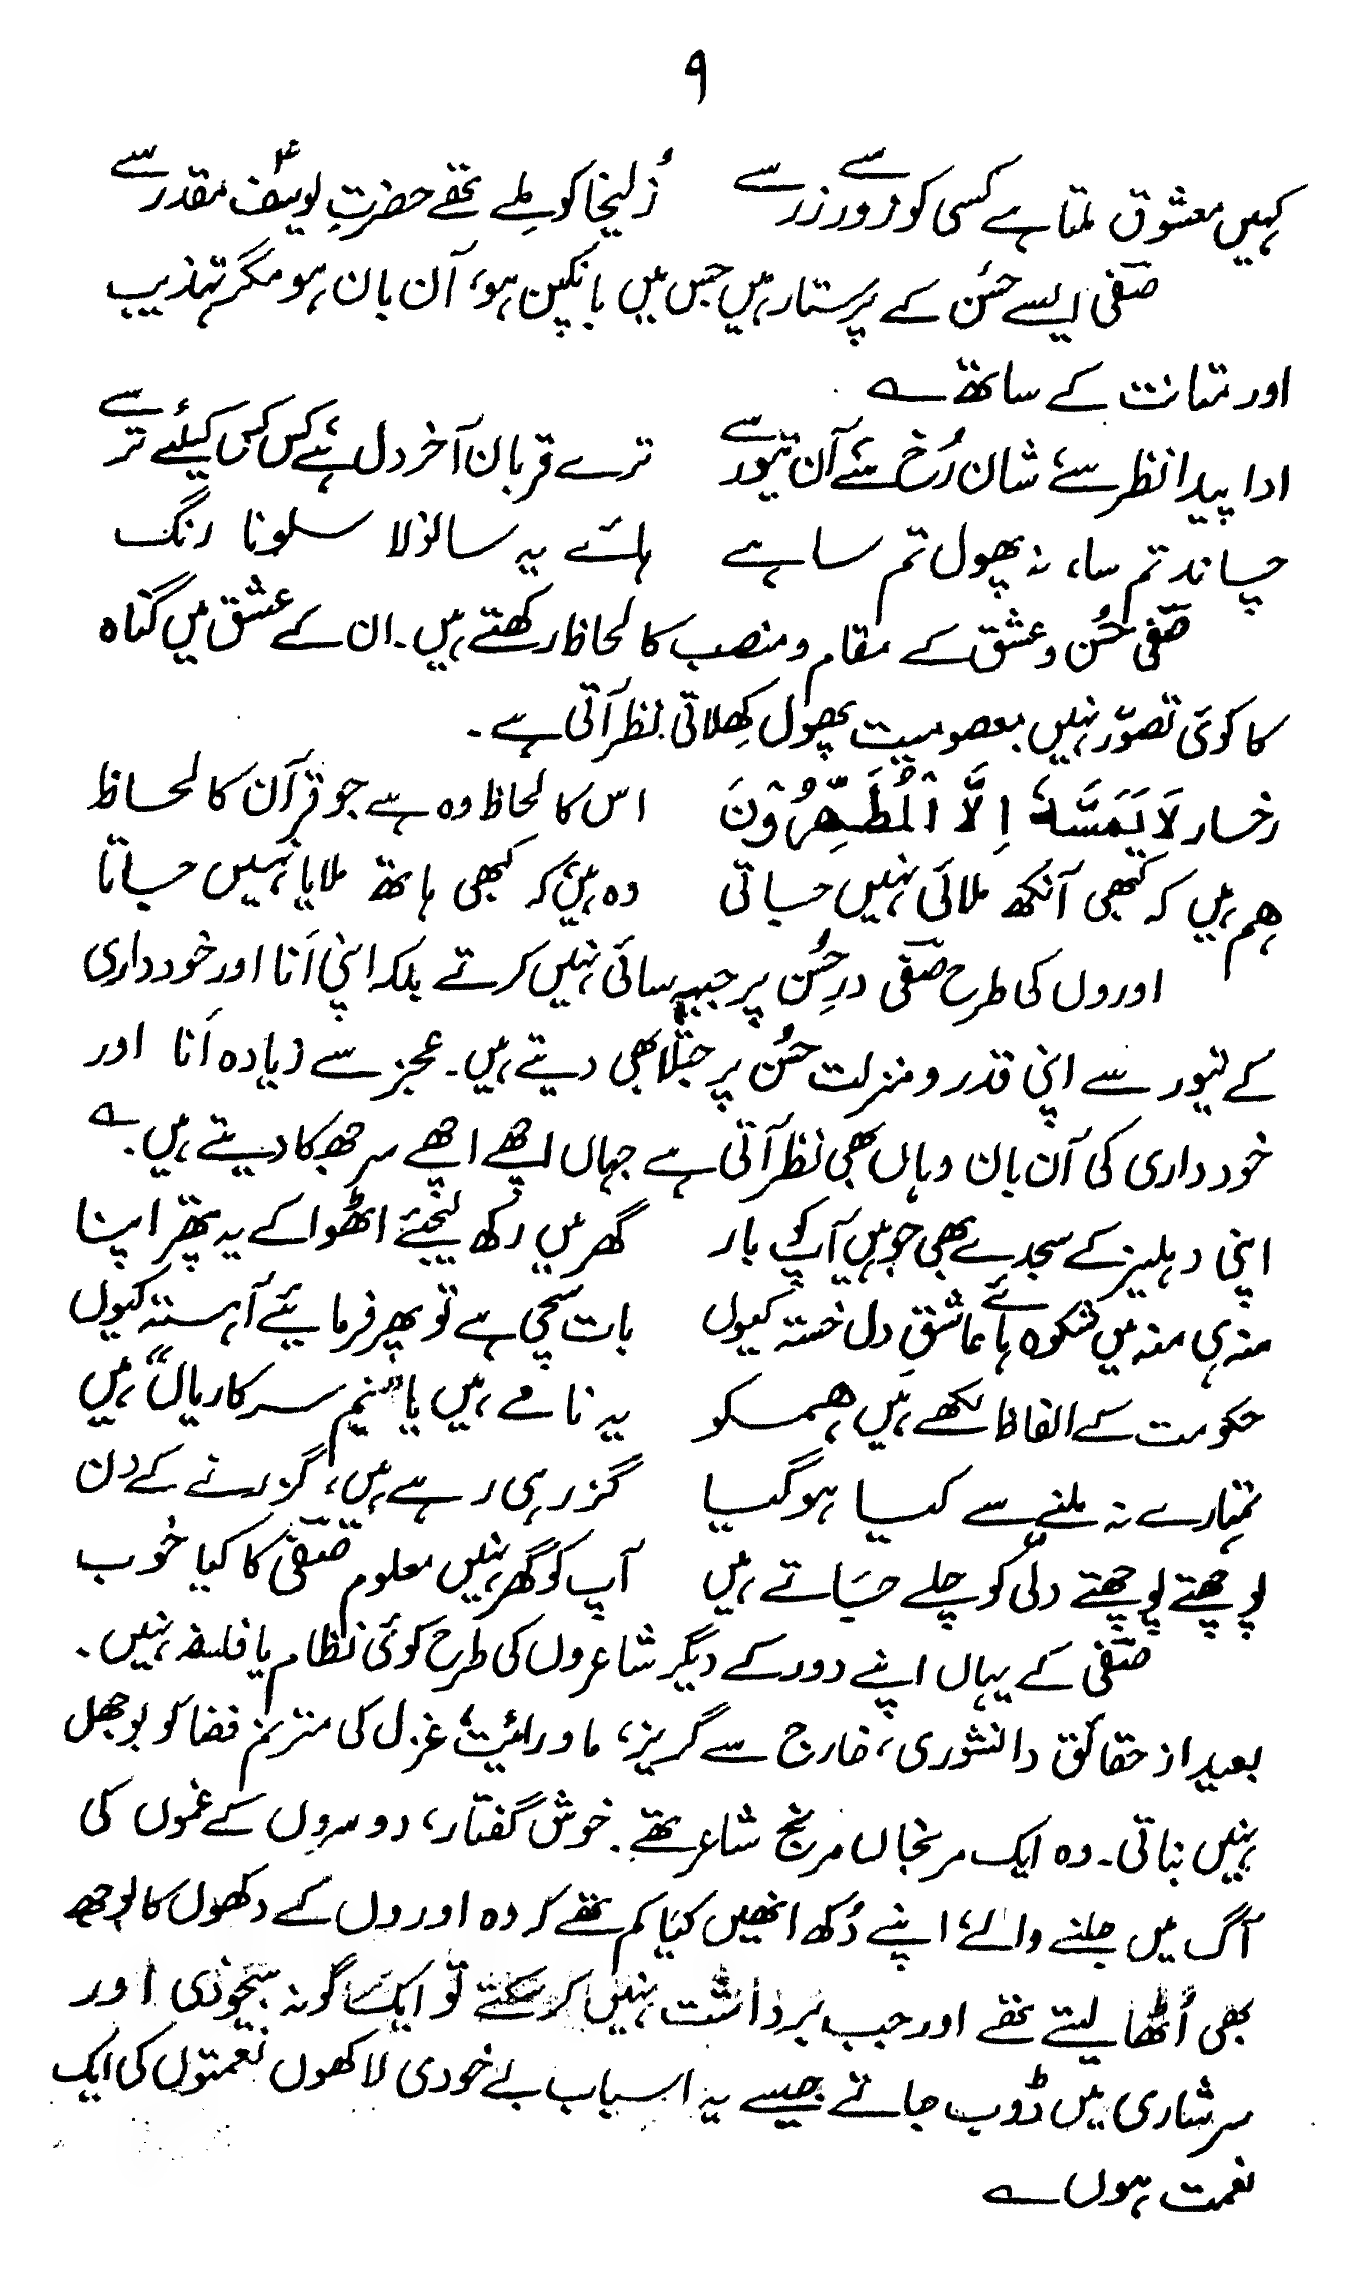 ۹
کہیں معشوق ملتا ہے کسی کو زور سے زر سے زُلیخا کو ملے تھے حضرتِ یوسفؑ مقدر سے
صفیؔ ایسے حُسن کے پرستار ہیں جس میں بانکپن ہو، آن بان ہو مگر تہذیب
اور متانت کے ساتھ ؎
ادا پیدا نظر سے، شان رُخ سے، آن تیور سے ترے قربان آخر دل ہے کس کس کیلئے ترسے
چاند تم سا، نہ پھول تم سا ہے ہائے یہ سانولا سلونا رنگ
صفیؔ حُسن و عشق کے مقام و منصب کا لحاظ رکھتے ہیں۔ ان کے عشق میں گناہ
کا کوئی تصوّر نہیں معصومیت پھول کِھلاتی نظر آتی ہے۔
رخسار لَا یَمَسُّہٗ اِلَّا الْمُطَہَّرُوْنَ اس کا لحاظ وہ ہے جو قرآن کا لحاظ
ہم ہیں کہ کبھی آنکھ ملائی نہیں جاتی وہ ہیں کہ کبھی ہاتھ ملایا نہیں جاتا
اوروں کی طرح صفیؔ درِ حُسن پر جبہہ سائی نہیں کرتے بلکہ اپنی اَنا اور خودداری
کے تیور سے اپنی قدر و منزلت حُسن پر جتلا بھی دیتے ہیں۔ عجز سے زیادہ اَنا اور
خودداری کی آن بان وہاں بھی نظر آتی ہے جہاں اچھے اچھے سر جھکا دیتے ہیں۔ ؎
اپنی دہلیز کے سجدے بھی جو ہیں آپ کو بار گھر میں رکھ لیجئے اٹھوا کے یہ پتھر اپنا
منہ ہی منہ میں شکوہ ہائے عاشقِ دل خستہ کیوں بات سچی ہے تو پھر فرمائیے آہستہ کیوں
حکومت کے الفاظ لکھے ہیں ہم کو یہ نامے ہیں یا "نیم سرکاریاں" ہیں
تمہارے نہ ملنے سے کیا ہو گیا گزر ہی رہے ہیں، گزرنے کے دن
پوچھتے پوچھتے دلی کو چلے جاتے ہیں آپ کو گھر نہیں معلوم صفیؔ کا کیا خُوب
صفیؔ کے یہاں اپنے دور کے دیگر شاعروں کی طرح کوئی نظام یا فلسفہ نہیں۔
بعید از حقائق دانشوری، خارج سے گریز، ماورائیت، غزل کی مترنم فضا کو بوجھل
نہیں بناتی۔ وہ ایک مرنجاں مرنج شاعر تھے۔ خوش گفتار، دوسروں کے غموں کی
آگ میں جلنے والے، اپنے دُکھ انھیں کیا کم تھے کہ وہ اوروں کے دکھوں کا بوجھ
بھی اُٹھا لیتے تھے اور جب برداشت نہیں کر سکتے تو ایک گونہ بیخودی اور
سرشاری میں ڈوب جاتے جیسے یہ اسباب بے خودی لاکھوں نعمتوں کی ایک
نعمت ہوں ؎